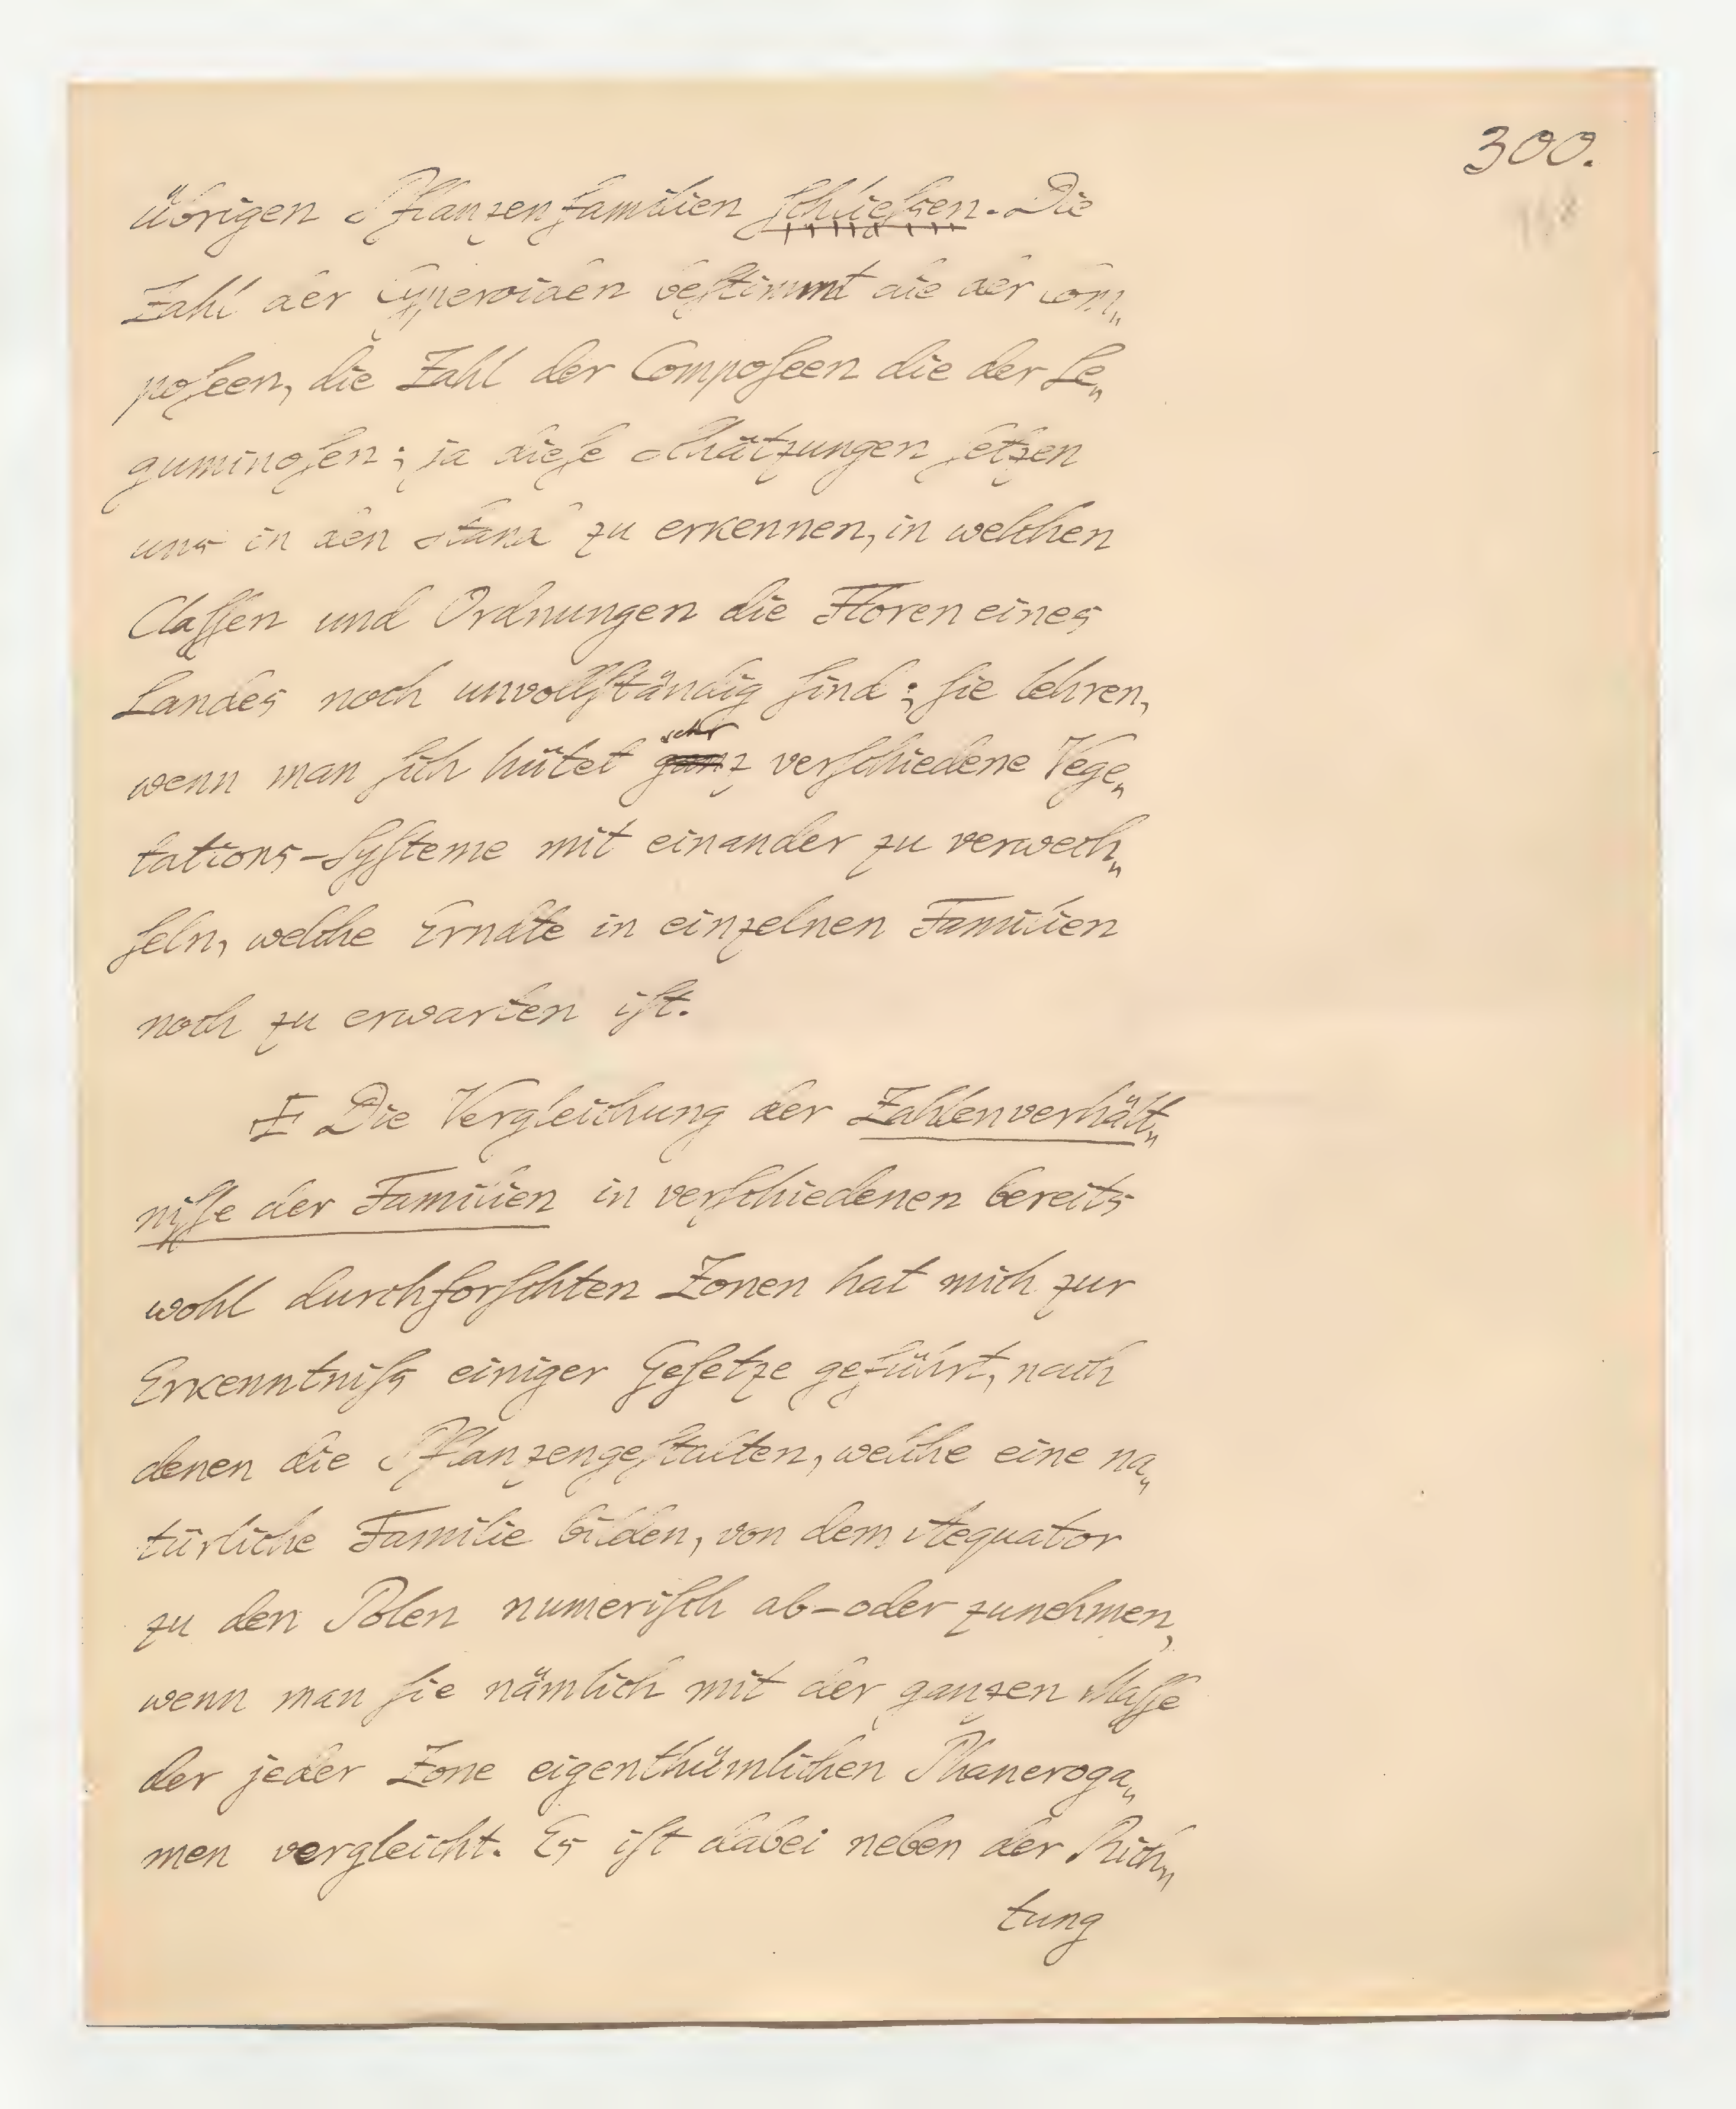 300.
übrigen Pflanzenfamilien ſchlieſsen. Die
Zahl der Cyperoiden beſtimmt die der Com„
poſeen, die Zahl der Compoſeen die der Le„
guminoſen; ja dieſe Schätzungen ſetzen
uns in den Stand zu erkennen, in welchen
Claſſen und Ordnungen die Floren eines
Landes noch unvollſtändig ſind; ſie lehren,
sehr
wenn man ſich hütet ganz verſchiedene Vege„
tations-Syſteme mit einander zu verwech„
ſeln, welche Erndte in einzelnen Familien
noch zu erwarten iſt.
Die Vergleichung der Zahlenverhält„
niſſe der Familien in verſchiedenen bereits
wohl durchforſchten Zonen hat mich zur
Erkenntniſs einiger Geſetze geführt, nach
denen die Pflanzengeſtalten, welche eine na„
türliche Familie bilden, von dem Aequator
zu den Polen numeriſch ab-oder zunehmen,
wenn man ſie nämlich mit der ganzen Maſſe
der jeder Zone eigenthümlichen Phaneroga„
men vergleicht. Es iſt dabei neben der Rich„
tung